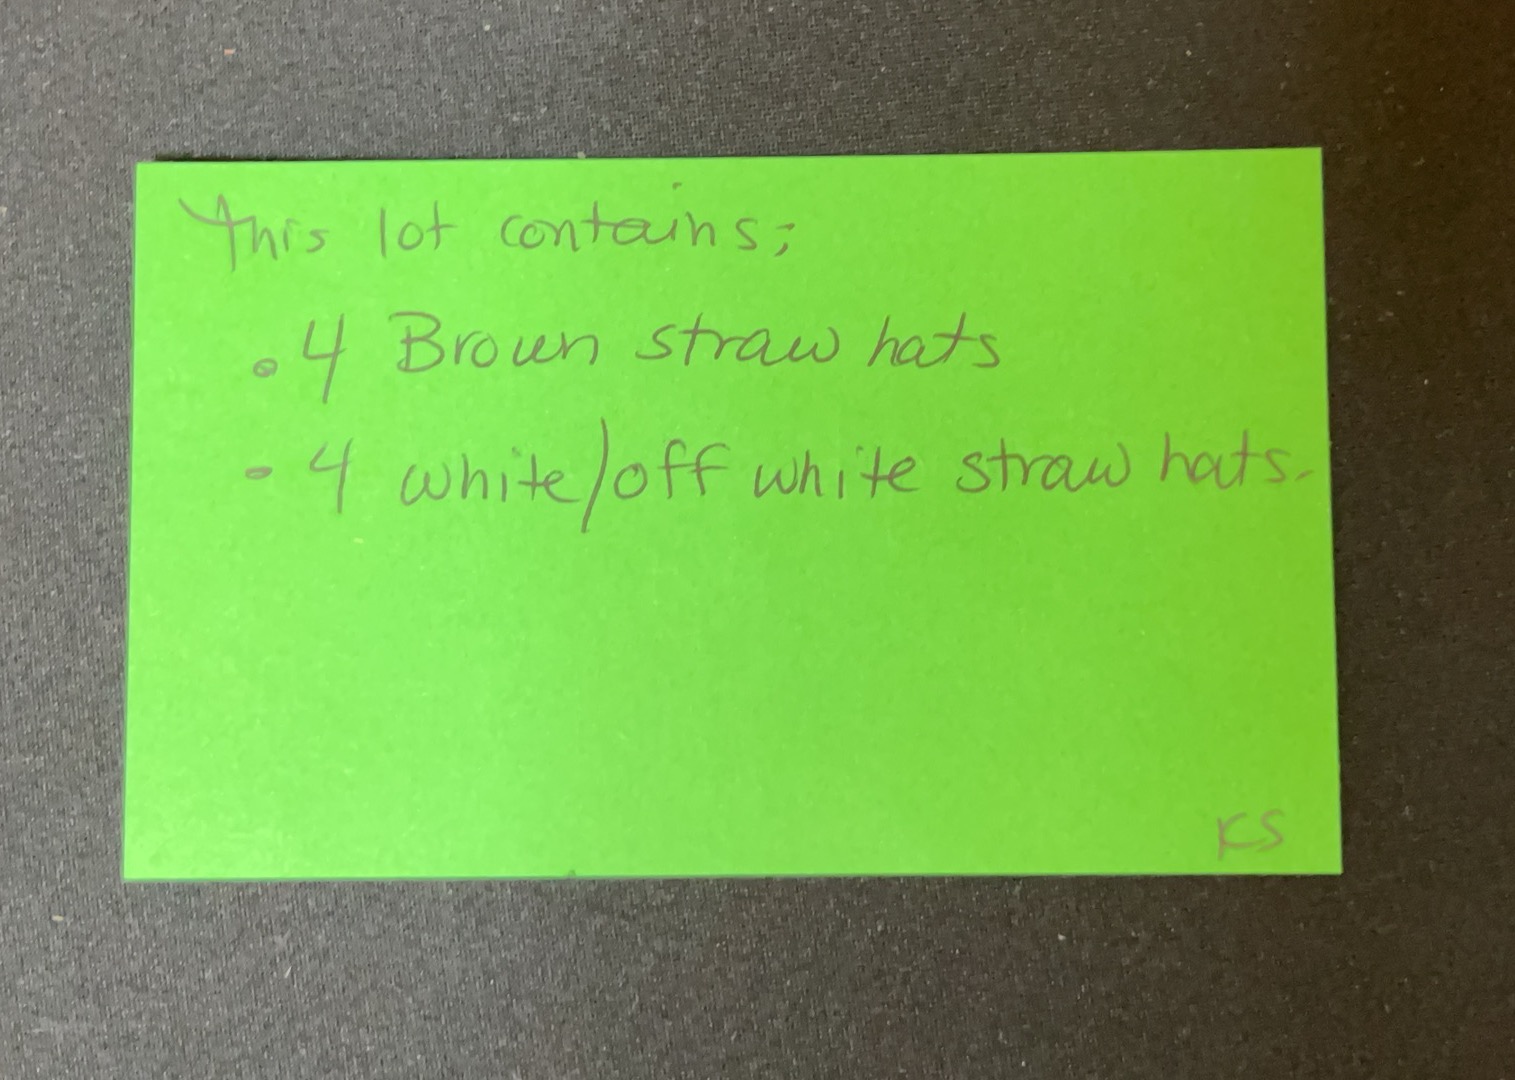 This lot contains;
• 4 Brown straw hats
• 4 white/off white straw hats.
KS